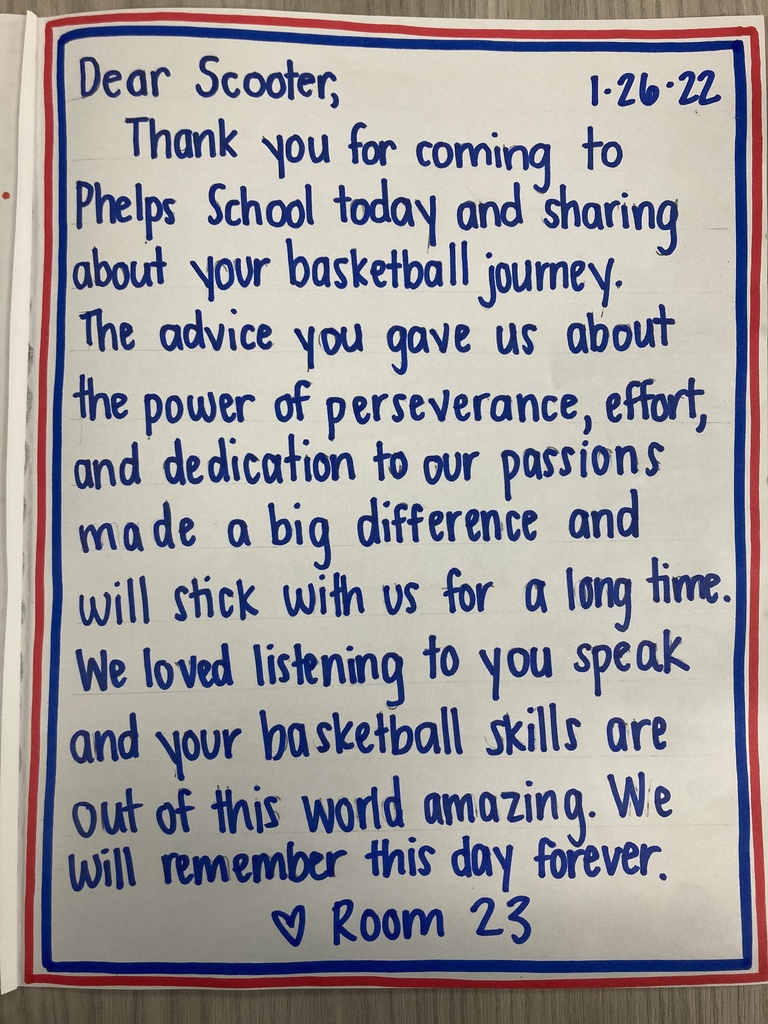 Dear Scooter, 1·26·22
Thank you for coming to
Phelps School today and sharing
about your basketball journey.
The advice you gave us about
the power of perseverance, effort,
and dedication to our passions
made a big difference and
will stick with us for a long time.
We loved listening to you speak
and your basketball skills are
out of this world amazing. We
will remember this day forever.
♡ Room 23